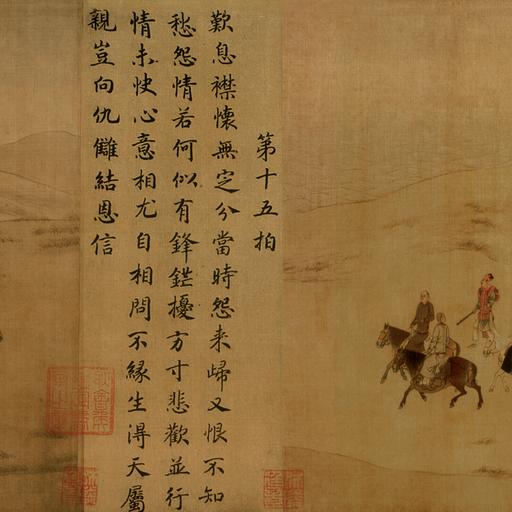 第十五拍
歎息襟懷無定分當時怨来歸又恨不知
愁怨情若何似有鋒鋩擾方寸悲歡並行
情未快心意相尤自相問不緣生淂天屬
親豈向仇讎結恩信